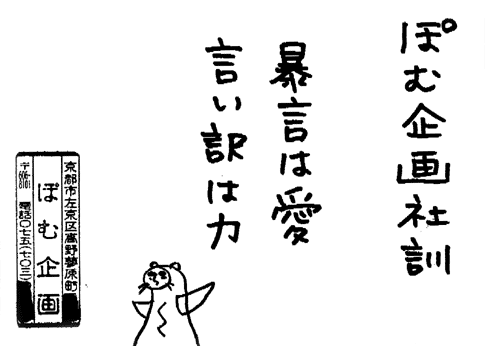 ぽむ企画社訓
暴言は愛
言い訳は力
京都市左京区高野蓼原町
ぽむ企画
〒606-8101 電話〇七五(七〇三)